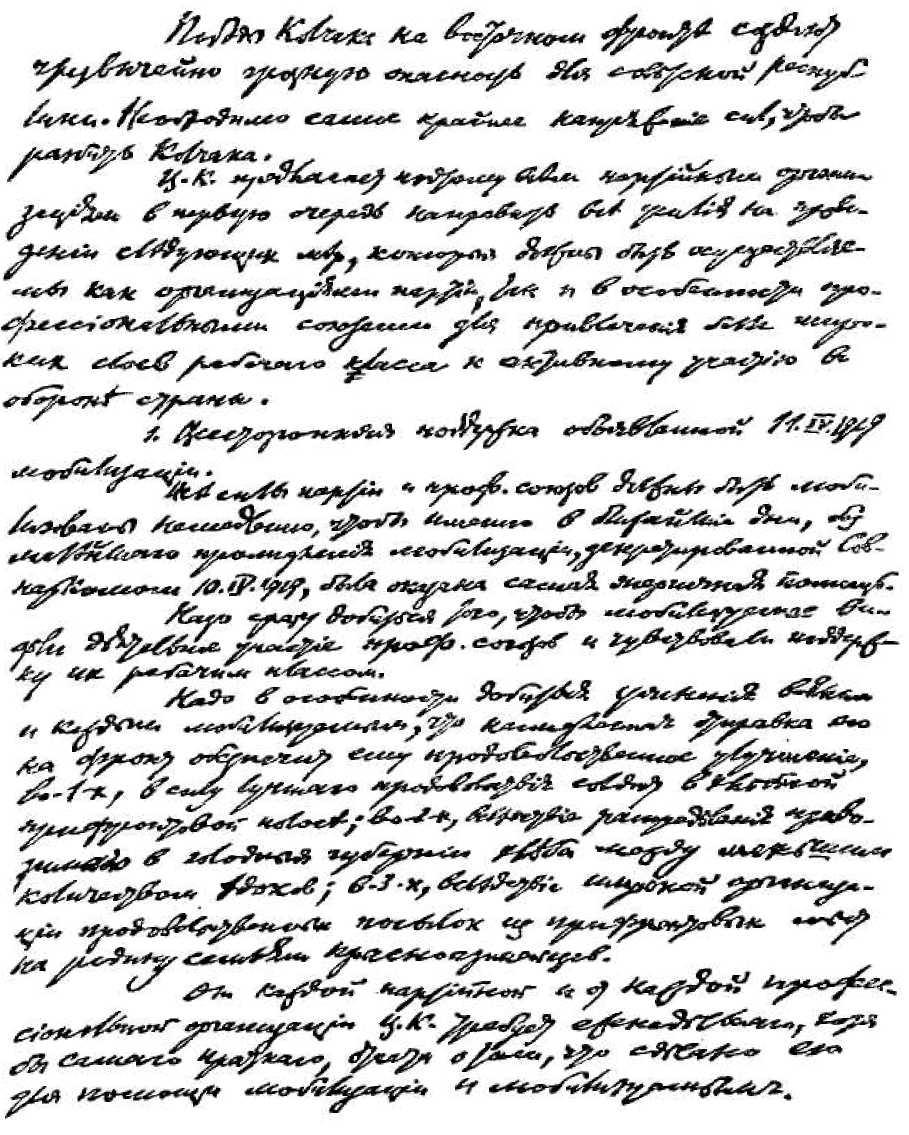 Победы Колчака на восточном фронте создают
чрезвычайно грозную опасность для советской респуб-
лики. Необходимо самое крайнее напряжение сил, чтобы
разбить Колчака.
Ц.К. предлагает поэтому всем партийным организа-
циям в первую очередь направить все усилия на прове-
дение следующих мер, которыя должны быть осуществляе-
мы как организациями партии, так и в особенности про-
фессиональными союзами для привлечения более широ-
ких слоев рабочаго класса к активному участию в
обороне страны.
1. Всесторонняя поддержка объявленной 11.IV.1919
мобилизации.
Все силы партии и проф. союзов должны быть моби-
лизованы немедленно, чтобы именно в ближайшие дни, без
малейшаго промедления мобилизации, декретированной Сов-
наркомом 10.IV.1919, была оказана самая энергичная помощь.
Надо сразу добиться того, чтобы мобилизуемые ви-
дели деятельное участие проф. союзов и чувствовали поддерж-
ку их рабочим классом.
Надо в особенности добиться уяснения всяким
и каждым мобилизуемым, что немедленная отправка его
на фронт обеспечит ему продовольственное улучшение,
во-1-х, в силу лучшаго продовольствия солдат в хлебной
прифронтовой полосе; во-2-х, вследствие распределения приво-
зимаго в голодныя губернии хлеба между меньшим
количеством едоков; в-3-х, вследствие широкой организа-
ции продовольственных посылок из прифронтовых мест
на родину семьям красноармейцев.
От каждой партийной и от каждой профес-
сиональной организации Ц.К. требует еженедельнаго, хотя
бы самаго краткаго, отчета о том, что сделано ею
для помощи мобилизации и мобилизуемым.